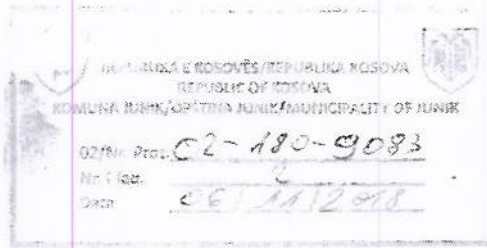 REPUBLIKA E KOSOVËS/REPUBLIKA KOSOVA
REPUBLIC OF KOSOVA
KOMUNA JUNIK/OPŠTINA JUNIK/MUNICIPALITY OF JUNIK
02/Nr. Prot. 02-180-9083
Nr. i faq. 2
Data 06/11/2018